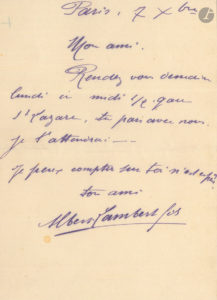 Paris, 7 Xbre
Mon ami.
Rendez vous demain
lundi à midi 1/2 gare
St Lazare, tu pars avec nous.
je t'attendrai —
Je peux compter sur toi n'est ce pas?
ton ami
Albert Lambert fils